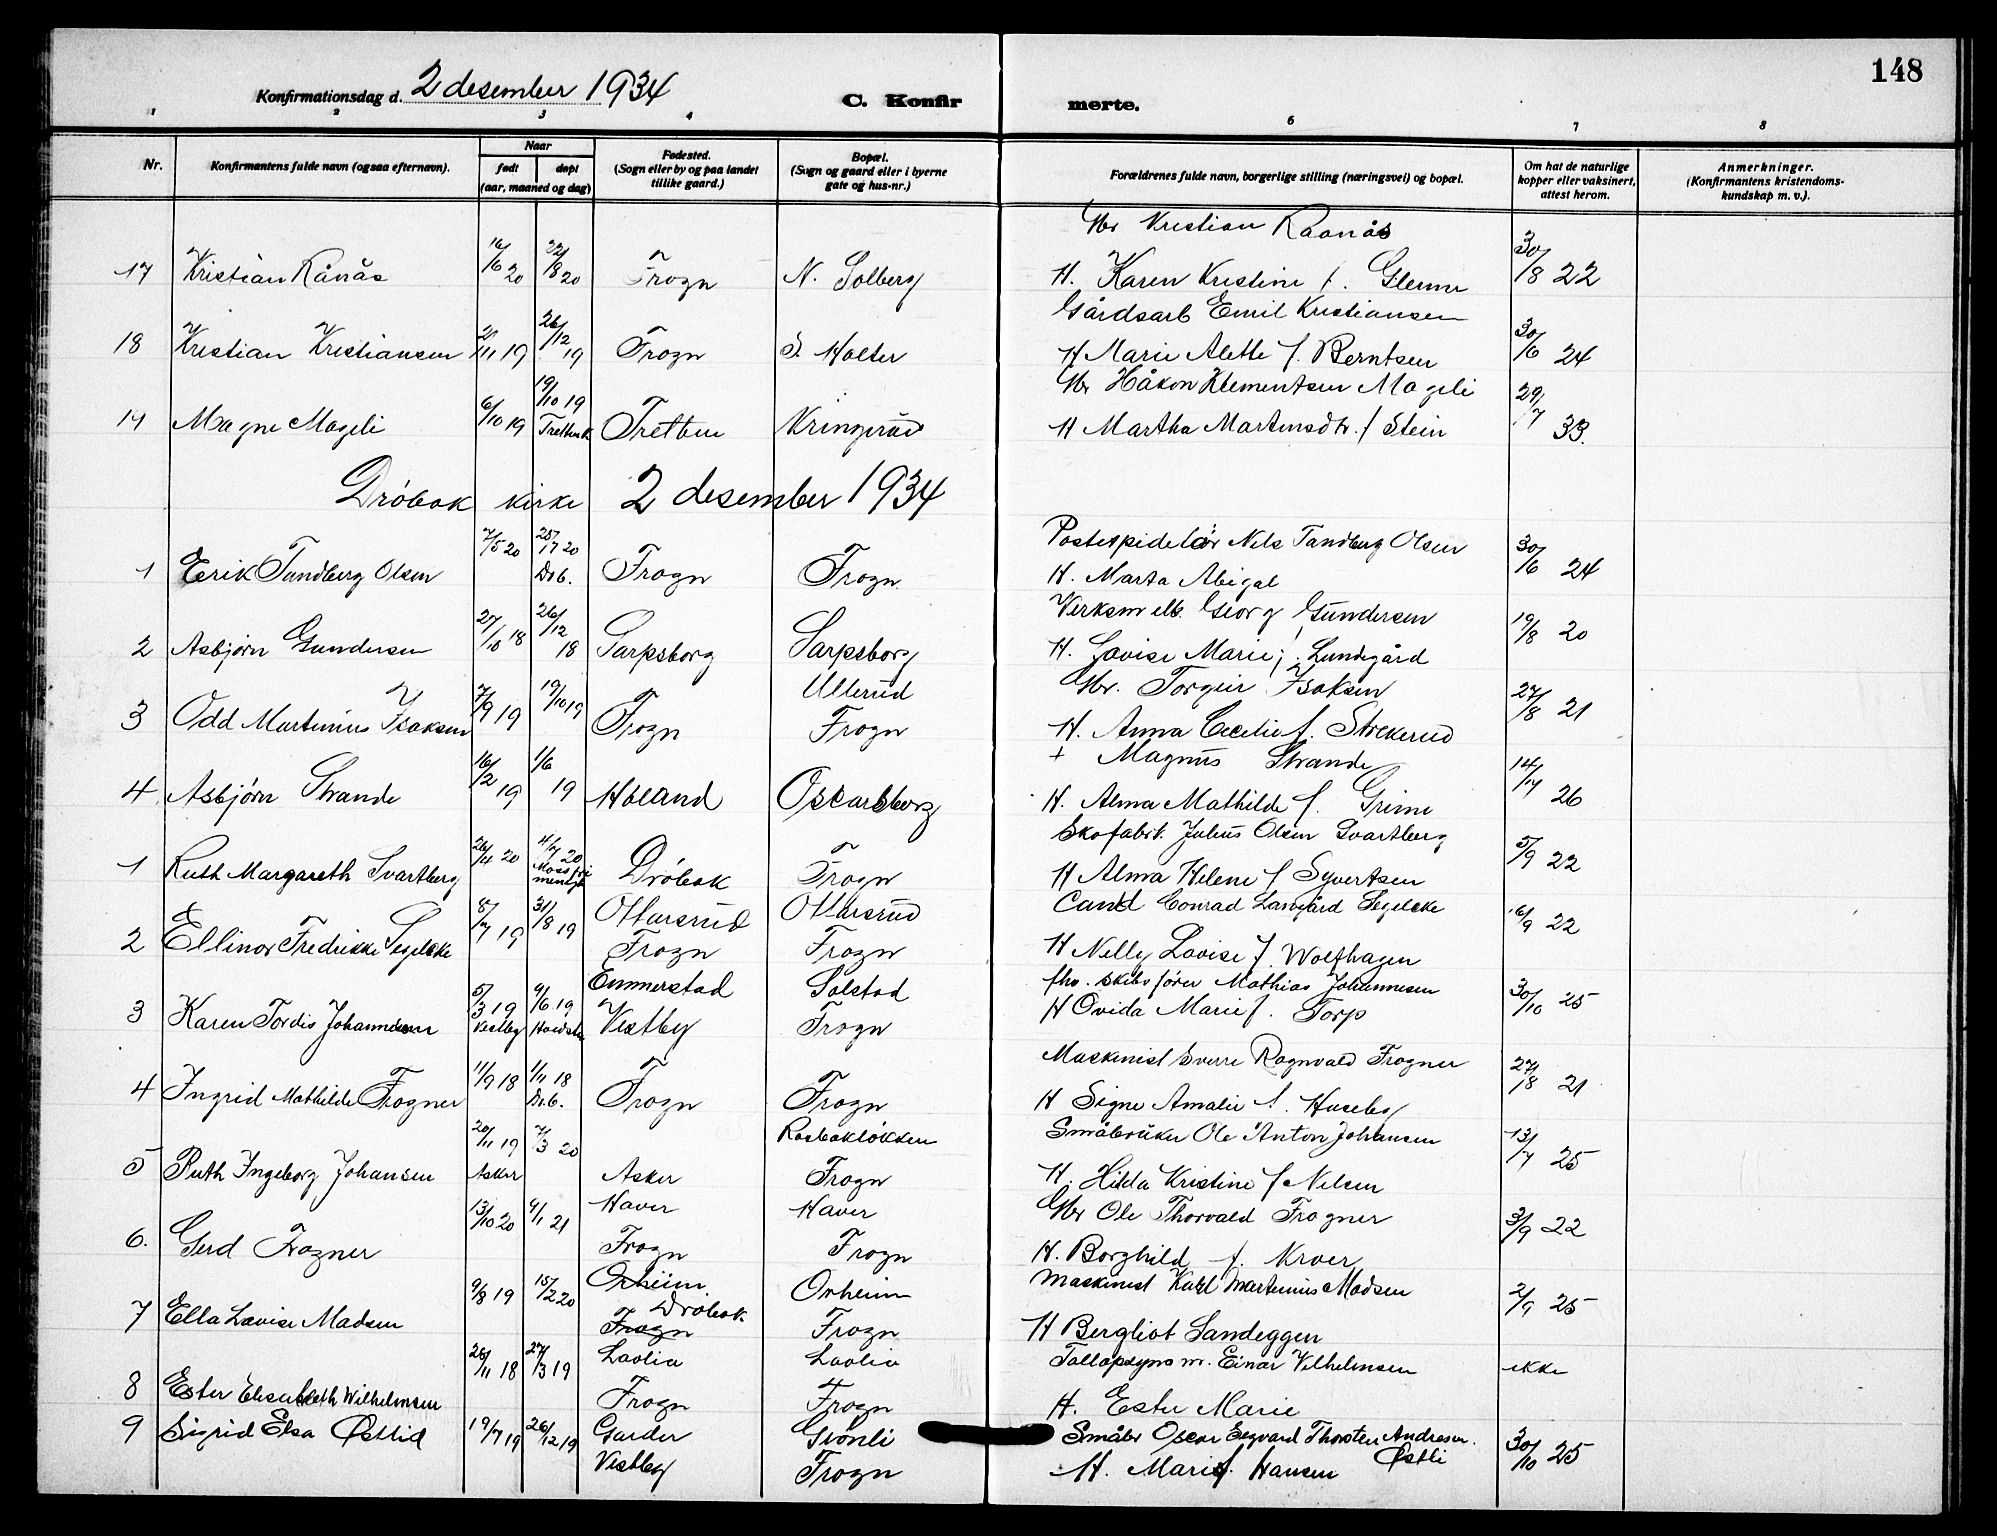 148
Konfirmationsdag d. 2 desember 1934 C. Konfirmerte.
1 2 3 4 6 7 8
Nr. Konfirmantens fulde navn (ogsaa efternavn). Naar født døpt (aar, maaned og dag) Fødested. (Sogn eller by og paa landet tillike gaard.) Bopæl. (Sogn og gaard eller i byerne gate og hus-nr.) Forældrenes fulde navn, borgerlige stilling (næringsvei) og bopæl. Om hat de naturlige kopper eller vaksinert, attest herom. Anmerkninger. (Konfirmantens kristendomskundskap m. v.).
Gbr Kristian Raanås
17 Kristian Rånås 16/6 20 22/8 20 Frogn N. Solberg H. Karen Kristine f. Glenne 30/8 22
Gårdsarb Emil Kristiansen
18 Kristian Kristiansen 2/11 19 26/12 19 Frogn S. Holter H Marie Alette f. Berntsen 30/6 24
Gbr Håkon Klementsen Mageli
19 Magne Mageli 6/10 19 19/10 19 Tretten k Tretten Kringerud H Martha Martinsdtr. f Stein 29/7 33.
Drøbak kirke 2 desember 1934
Postexpeditør Nils Tandberg Olsen
1 Erik Tandberg Olsen 7/5 20 25/7 20 Drb. Frogn Frogn. H. Marta Abigael 30/6 24
Verksm elb. Georg Gundersen
2 Asbjørn Gundersen 27/10 18 26/12 18 Sarpsborg Sarpsborg H. Lovise Marie f. Lundegård 19/8 20
Ullerud Gbr. Torgeir Isaksen
3 Odd Martinius Isaksen 7/9 19 19/10 19 Frogn Frogn H. Anna Cecilie f. Storkerud 27/8 21
+ Magnus Strande
4 Asbjørn Strande 16/2 19 1/6 19 Høland Oscarsborg H. Alma Mathilde f. Grime 14/7 26
Skofabrk. Julius Olsen Svartberg
1 Ruth Margareth Svartberg 26/4 20 4/7 20 Moss fri menigh Drøbak Frogn H Alma Helene f Syvertsen 5/9 22
Ottarsrud Ottarsrud Cand Conrad Langård Segelcke
2 Ellinor Fredrikke Segelcke 8/7 19 31/8 19 Frogn Frogn H Nelly Lovise f. Wolfhagen 16/9 22
Emmerstad Solstad fhv. skibsfører Mathias Johannesen
3 Karen Tordis Johannesen 5/3 19 Vestby 9/6 19 Vestby Frogn H Ovida Marie f. Torp 30/10 25
Maskinist Sverre Ragnvald Frogner
4 Ingrid Mathilde Frogner 11/9 18 1/11 18 Drb. Frogn Frogn H Signe Amalie f. Huseby 27/8 21
Rosbakløkken Småbruker Ole Anton Johansen
5 Ruth Ingeborg Johansen 20/11 19 Asker 7/3 20 Asker Frogn H. Hilda Kristine f Nilsen 13/7 25
Haver Haver Gbr Ole Thorvald Frogner
6. Gerd Frogner 13/10 20 9/1 21 Frogn Frogn H. Borghild f. Kroer 3/9 22
Onheim Onheim Maskinist Karl Martinius Madsen
7 Ella Lovise Madsen 9/8 19 15/2 20 Drøbak Frogn Frogn H Bergliot Sandeggen 2/9 25
Laolia Laolia Tollopsyns m. Einar Vilhelmsen
8 Ester Elisabeth Wilhelmsen 26/11 18 27/3 19 Frogn Frogn H. Ester Marie ikke
9 Sigrid Elsa Østlid 19/7 19 26/12 19 Garder Grønli Småbr Oscar Segvard Thorsten Andresen. Østli 30/10 25
Vestby Frogn H. Marie f. Hansen